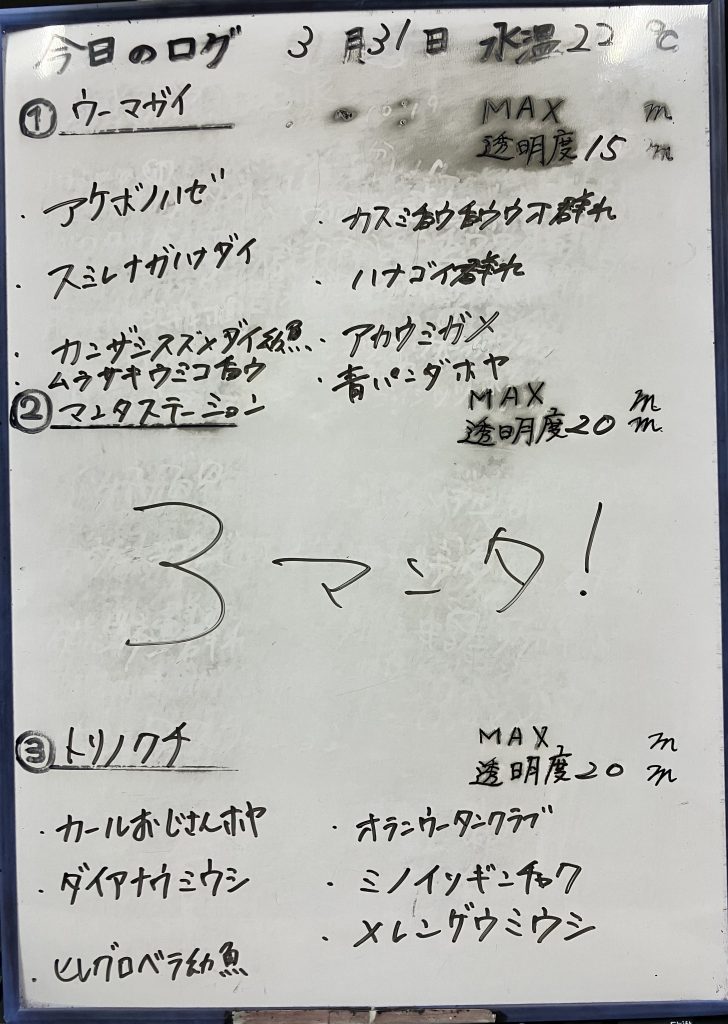 今日のログ 3月31日 水温22℃
① ウーマガイ
MAX m
透明度15m
・アケボノハゼ
・スミレナガハナダイ
・カンザシスズメダイ幼魚
・ムラサキウミコチョウ
・カスミチョウチョウウオ群れ
・ハナゴイ群れ
・アカウミガメ
・青パンダホヤ
② マンタステーション
MAX m
透明度20m
3マンタ!
③ トリノクチ
MAX m
透明度20m
・カールおじさんホヤ
・ダイアナウミウシ
・ヒレグロベラ幼魚
・オランウータンクラブ
・ミノイソギンチャク
・メレンゲウミウシ